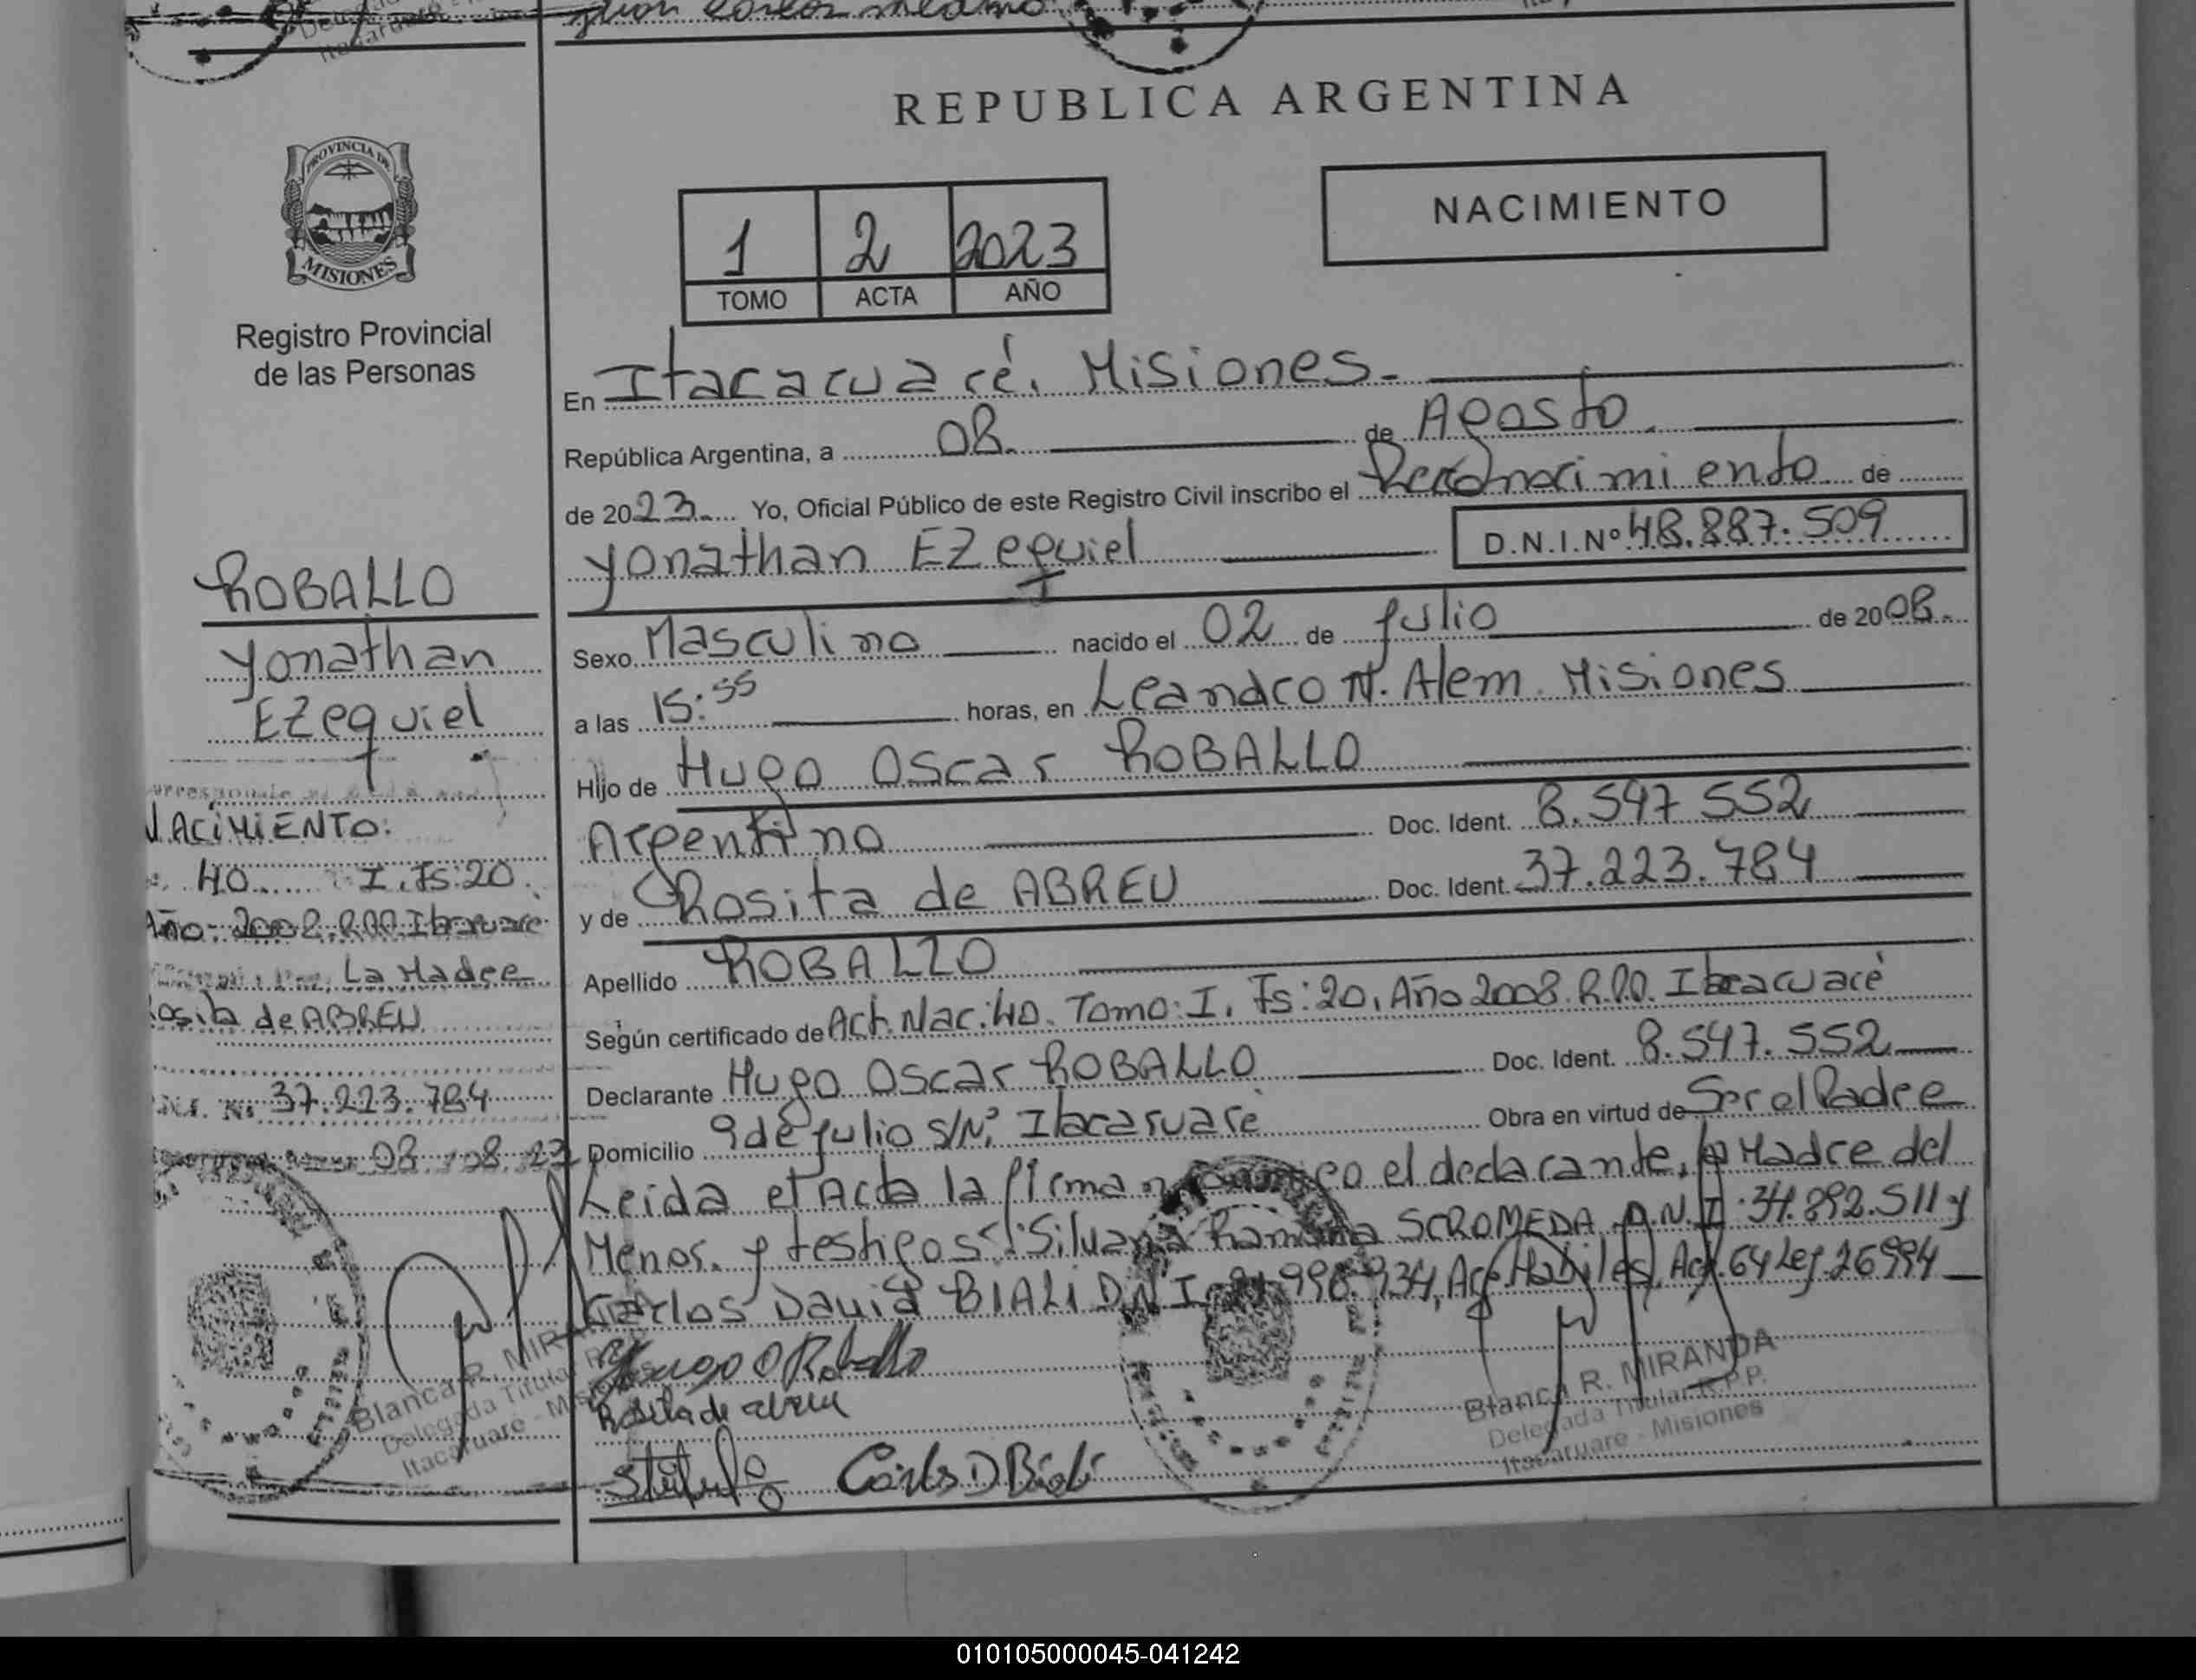 Juan Carlos
REPUBLICA ARGENTINA
PROVINCIA DE
MISIONES
Registro Provincial
de las Personas
NACIMIENTO
1 2 2023
TOMO ACTA AÑO
En Itacaruaré. Misiones.
República Argentina, a 08. de Agosto.
de 2023. Yo, Oficial Público de este Registro Civil inscribo el Reconocimiento de
Yonathan EZequiel D.N.I.Nº 48.887.509
Sexo Masculino nacido el 02 de Julio de 2008.
a las 15:55 horas, en Leandro N. Alem. Misiones
Hijo de Hugo Oscar ROBALLO
Argentino Doc. Ident. 8.547.552
y de Rosita de ABREU Doc. Ident. 37.223.784
Apellido ROBALLO
Según certificado de Act. Nac: 40. Tomo: I. Fs: 20, Año 2008. R.P.P. Itacaruaré
Declarante Hugo Oscar ROBALLO Doc. Ident. 8.547.552
Domicilio 9 de Julio S/Nº. Itacaruaré Obra en virtud de Ser el Padre
Leida el Acta la firman el declarante, la Madre del
Menor. y testigos: Silvana Ramona SCROMEDA D.N.I: 34.892.511 y
Carlos David BIALI D.N.I. 998.934, Act. 64 Ley. 26994
Hugo O Roballo
Rosita de abreu
Carlos D Biali
Blanca R. MIRANDA
Delegada Titular R.P.P.
Itacaruare - Misiones
ROBALLO
Yonathan
EZequiel
NACIMIENTO:
40 I. Fs: 20
Año: 2008. R.P.P. Itacaruaré
La Madre
Rosita de ABREU
D.N.I. Nº 37.223.784
08 / 08 23
Blanca R. MIRANDA
Delegada Titular R.P.P.
Itacaruare - Misiones
010105000045-041242